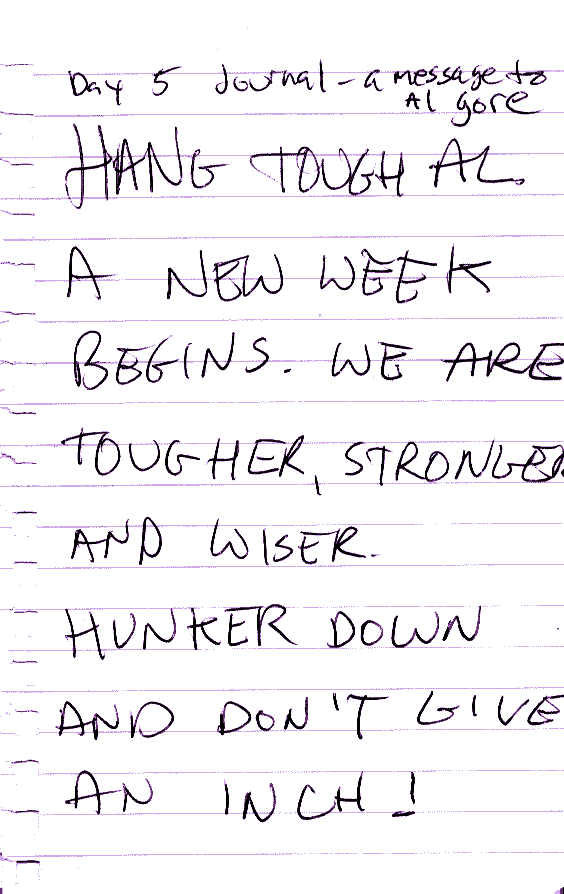 Day 5 Journal - a message to
Al gore
HANG TOUGH AL.
A NEW WEEK
BEGINS. WE ARE
TOUGHER, STRONGER
AND WISER.
HUNKER DOWN
AND DON'T GIVE
AN INCH!